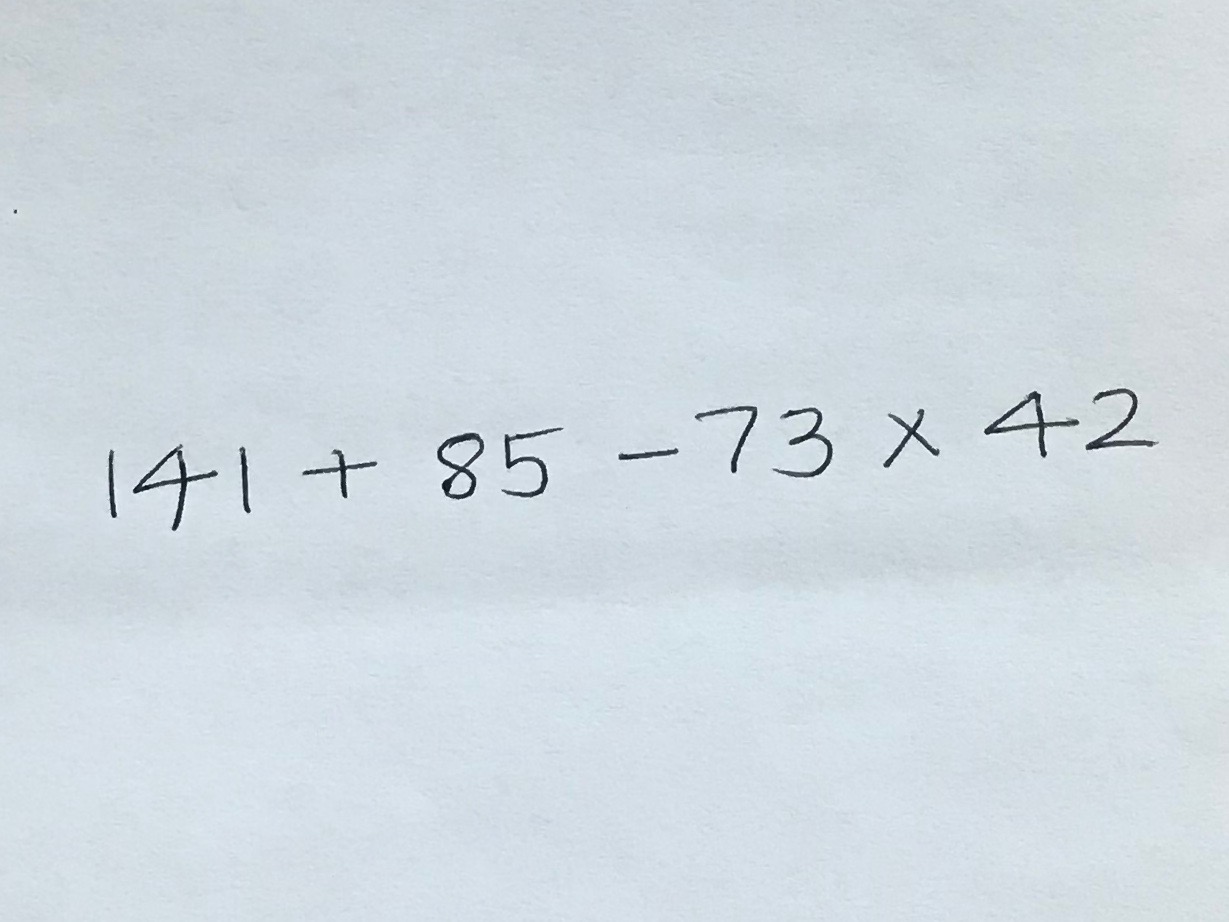 141 + 85 - 73 × 42